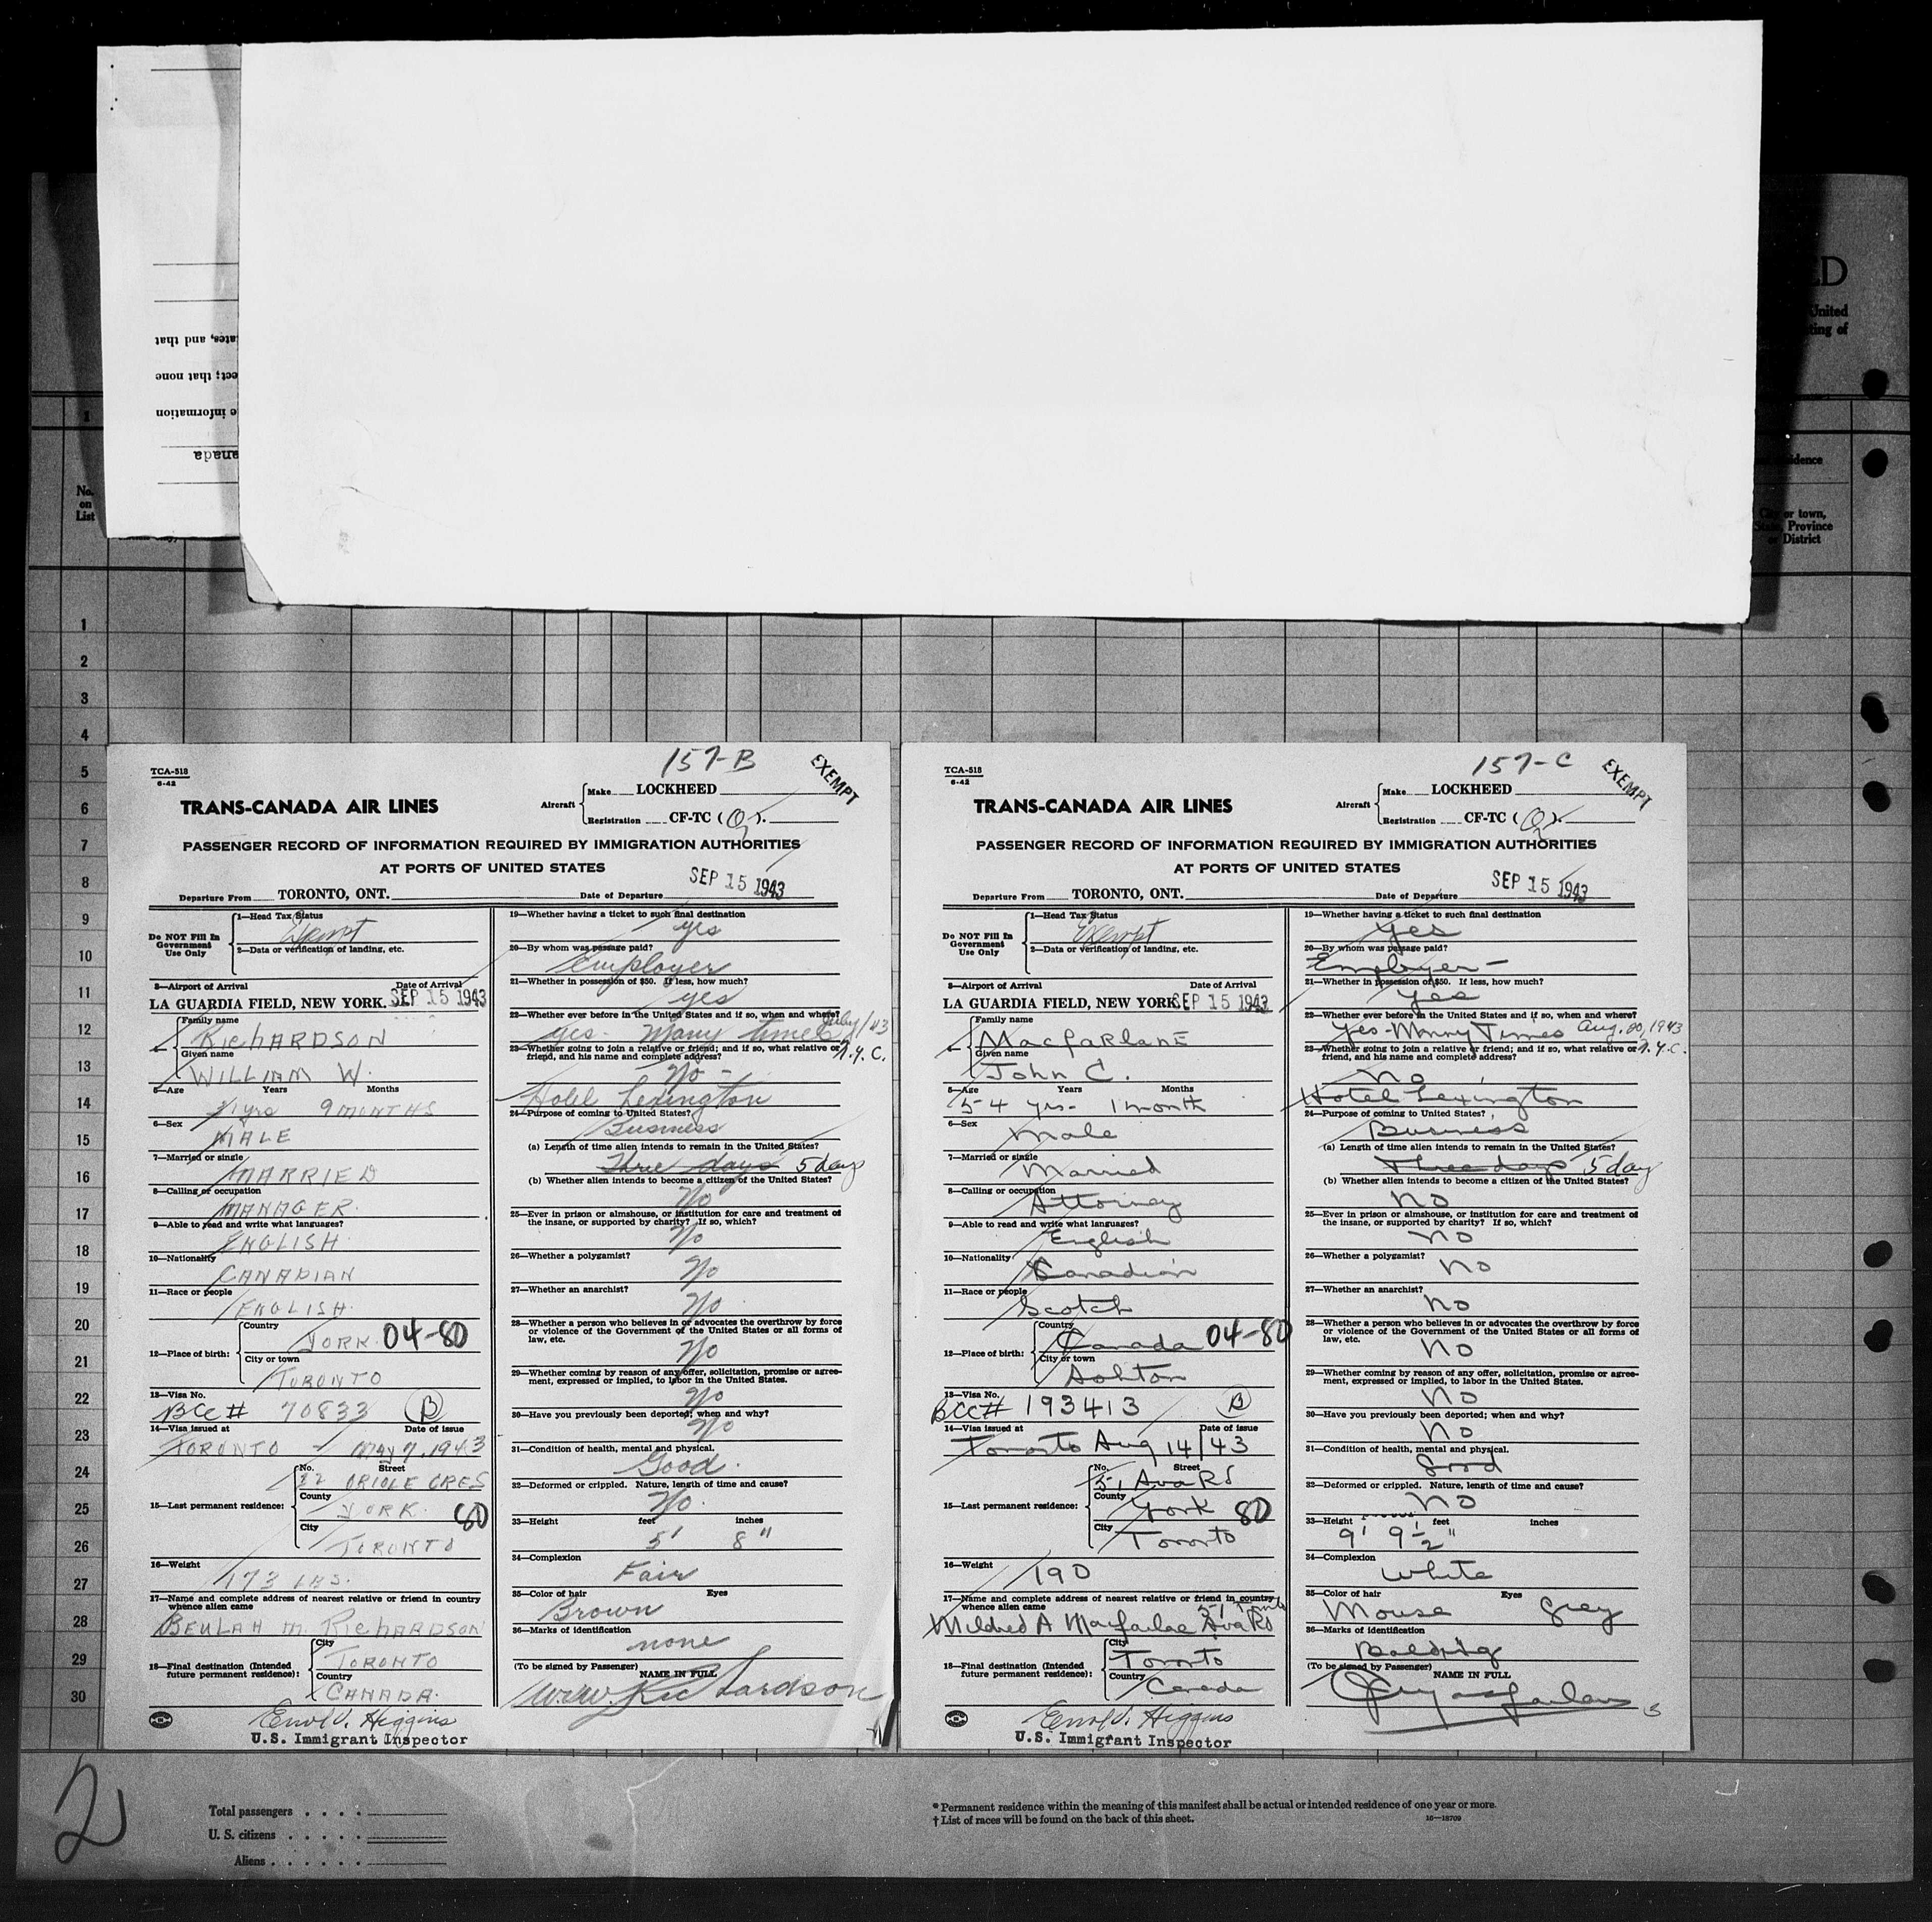 ates, and that
ect; that none
e information
anada
ED
United
ting of
1
No.
on
List
idence
City or town,
State, Province
or District
1
2
3
4
5
6
7
8
9
10
11
12
13
14
15
16
17
18
19
20
21
22
23
24
25
26
27
28
29
30
157-B
EXEMPT
TCA-518
6-42
TRANS-CANADA AIR LINES
Aircraft
Make LOCKHEED
Registration CF-TC (Q).
PASSENGER RECORD OF INFORMATION REQUIRED BY IMMIGRATION AUTHORITIES
AT PORTS OF UNITED STATES
SEP 15 1943
Departure From TORONTO, ONT. Date of Departure
Do NOT Fill In
Government
Use Only
1—Head Tax Status
Exempt
2—Data or verification of landing, etc.
3—Airport of Arrival Date of Arrival
LA GUARDIA FIELD, NEW YORK. SEP 15 1943
Family name
RICHARDSON
Given name
WILLIAM W.
5—Age Years Months
yrs 9 MONTHS
6—Sex
MALE
7—Married or single
MARRIED
8—Calling or occupation
MANAGER.
9—Able to read and write what languages?
ENGLISH
10—Nationality
CANADIAN
11—Race or people
ENGLISH.
12—Place of birth:
Country
YORK. 04-80
City or town
TORONTO
13—Visa No.
BCC# 70833 B
14—Visa issued at Date of issue
TORONTO - May 7, 1943
15—Last permanent residence:
No. Street
22 ORIOLE CRES
County
YORK. 80
City
TORONTO
16—Weight
173 LBS.
17—Name and complete address of nearest relative or friend in country
whence alien came
BEULAH M. RICHARDSON
18—Final destination (Intended
future permanent residence):
City
TORONTO
Country
CANADA.
Errol V. Higgins
U.S. Immigrant Inspector
19—Whether having a ticket to such final destination
yes
20—By whom was passage paid?
Employer
21—Whether in possession of $50. If less, how much?
yes
22—Whether ever before in the United States and if so, when and where?
yes - Many times July/43
23—Whether going to join a relative or friend; and if so, what relative or N.Y.C.
friend, and his name and complete address?
No -
Hotel Lexington
24—Purpose of coming to United States?
Business
(a) Length of time alien intends to remain in the United States?
Three days 5 days
(b) Whether alien intends to become a citizen of the United States?
No
25—Ever in prison or almshouse, or institution for care and treatment of
the insane, or supported by charity? If so, which?
No
26—Whether a polygamist?
No
27—Whether an anarchist?
No.
28—Whether a person who believes in or advocates the overthrow by force
or violence of the Government of the United States or all forms of
law, etc.
No
29—Whether coming by reason of any offer, solicitation, promise or agree-
ment, expressed or implied, to labor in the United States.
No
30—Have you previously been deported; when and why?
No
31—Condition of health, mental and physical.
Good.
32—Deformed or crippled. Nature, length of time and cause?
No.
33—Height feet inches
5' 8"
34—Complexion
Fair
35—Color of hair Eyes
Brown
36—Marks of identification
none
(To be signed by Passenger) NAME IN FULL
W.W. Richardson
157-C
EXEMPT
TCA-518
6-42
TRANS-CANADA AIR LINES
Aircraft
Make LOCKHEED
Registration CF-TC (Q).
PASSENGER RECORD OF INFORMATION REQUIRED BY IMMIGRATION AUTHORITIES
AT PORTS OF UNITED STATES
SEP 15 1943
Departure From TORONTO, ONT. Date of Departure
Do NOT Fill In
Government
Use Only
1—Head Tax Status
Exempt
2—Data or verification of landing, etc.
3—Airport of Arrival Date of Arrival
LA GUARDIA FIELD, NEW YORK. SEP 15 1943
Family name
MacFARLANE
Given name
John C.
5—Age Years Months
54 yrs - 1 month
6—Sex
Male
7—Married or single
Married
8—Calling or occupation
Attorney
9—Able to read and write what languages?
English
10—Nationality
Canadian
11—Race or people
Scotch
12—Place of birth:
Country
Canada 04-80
City or town
Ashton
13—Visa No.
BCC# 193413 B
14—Visa issued at Date of issue
Toronto Aug 14/43
15—Last permanent residence:
No. Street
51 Ava Rd
County
York 80
City
Toronto
16—Weight
190
17—Name and complete address of nearest relative or friend in country
whence alien came
51 Toronto
Mildred A Macfarlane Ava Rd
18—Final destination (Intended
future permanent residence):
City
Toronto
Country
Canada
Errol V. Higgins
U.S. Immigrant Inspector
19—Whether having a ticket to such final destination
Yes
20—By whom was passage paid?
Employer -
21—Whether in possession of $50. If less, how much?
Yes
22—Whether ever before in the United States and if so, when and where?
Yes - Many Times Aug. 20, 1943
23—Whether going to join a relative or friend; and if so, what relative or N.Y.C.
friend, and his name and complete address?
No
Hotel Lexington
24—Purpose of coming to United States?
Business
(a) Length of time alien intends to remain in the United States?
Three days 5 day
(b) Whether alien intends to become a citizen of the United States?
No
25—Ever in prison or almshouse, or institution for care and treatment of
the insane, or supported by charity? If so, which?
No
26—Whether a polygamist?
No
27—Whether an anarchist?
No
28—Whether a person who believes in or advocates the overthrow by force
or violence of the Government of the United States or all forms of
law, etc.
No
29—Whether coming by reason of any offer, solicitation, promise or agree-
ment, expressed or implied, to labor in the United States.
No
30—Have you previously been deported; when and why?
No
31—Condition of health, mental and physical.
Good
32—Deformed or crippled. Nature, length of time and cause?
No
33—Height feet inches
9' 9½"
34—Complexion
White
35—Color of hair Eyes
Mouse Grey
36—Marks of identification
Balding
(To be signed by Passenger) NAME IN FULL
2
Total passengers . . . .
U. S. citizens . . . . .
Aliens . . . . . .
* Permanent residence within the meaning of this manifest shall be actual or intended residence of one year or more.
† List of races will be found on the back of this sheet. 16—18709